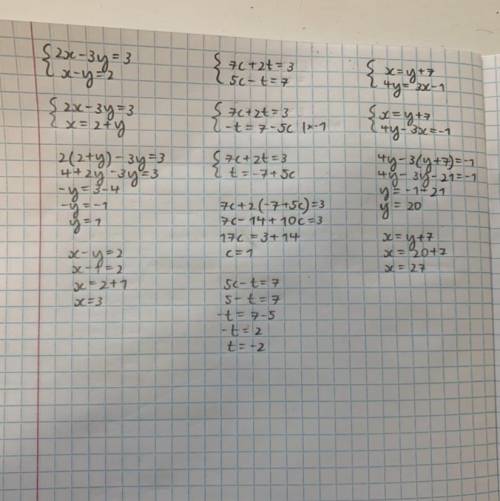 2x-3y=3
x-y=2
2x-3y=3
x=2+y
2(2+y)-3y=3
4+2y-3y=3
-y=3-4
-y=-1
y=1
x-y=2
x-1=2
x=2+1
x=3
7c+2t=3
5c-t=7
7c+2t=3
-t=7-5c |×-1
7c+2t=3
t=-7+5c
7c+2(-7+5c)=3
7c-14+10c=3
17c=3+14
c=1
5c-t=7
5-t=7
-t=7-5
-t=2
t=-2
x=y+7
4y=3x-1
x=y+7
4y-3x=-1
4y-3(y+7)=-1
4y-3y-21=-1
y=-1+21
y=20
x=y+7
x=20+7
x=27